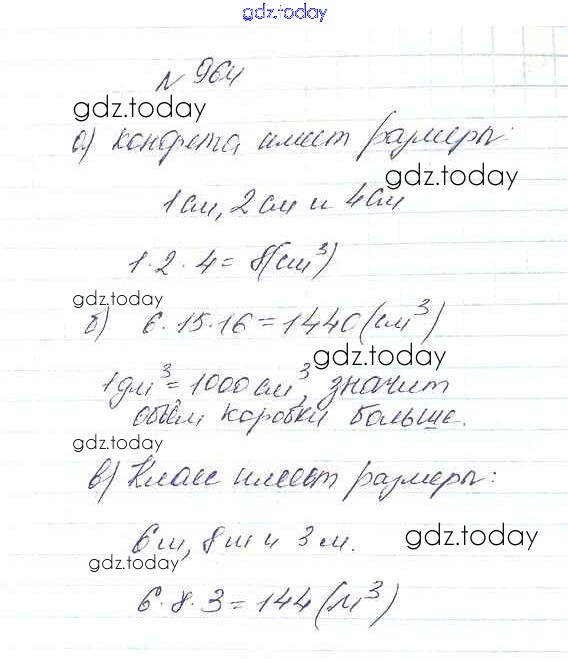 gdz.today
№ 964
gdz.today
а) конфета имеет размеры:
gdz.today
1 см, 2 см и 4 см
1·2·4=8(см³)
gdz.today
б) 6·15·16=1440(см³)
gdz.today
1дм³=1000см³, значит
объём коробки больше.
gdz.today
в) Класс имеет размеры:
6м, 8м и 3м.
gdz.today
gdz.today
6·8·3=144(м³)